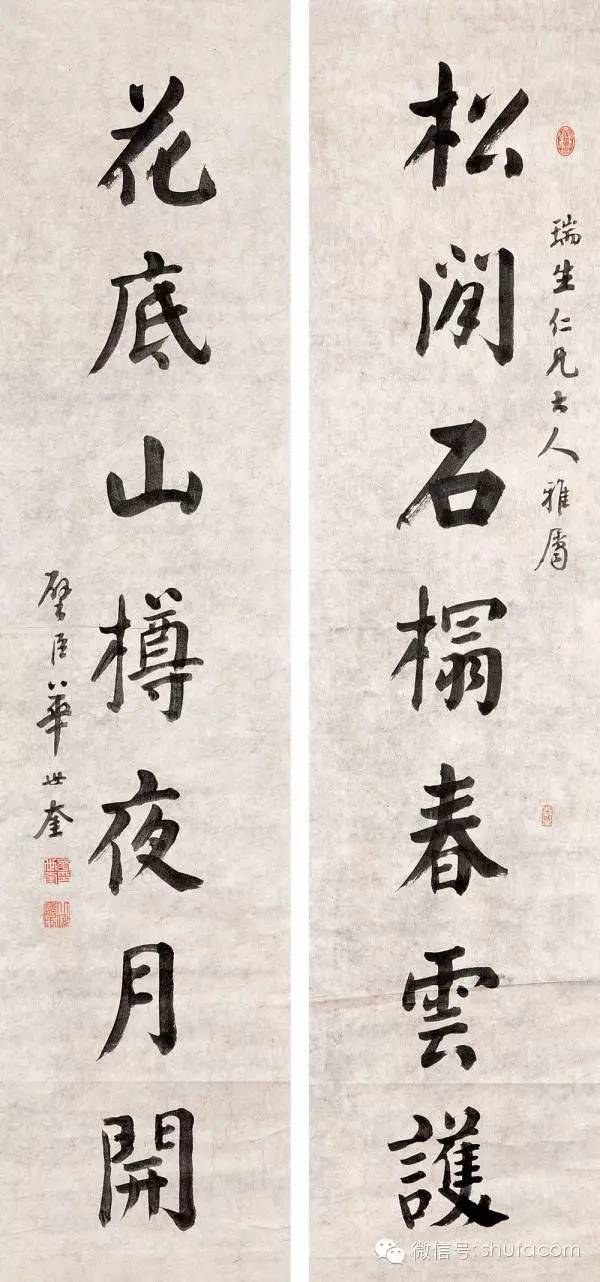 瑞生仁兄大人雅屬
松間石榻春雲護
花底山樽夜月開
璧臣華世奎
微信号: shufacom